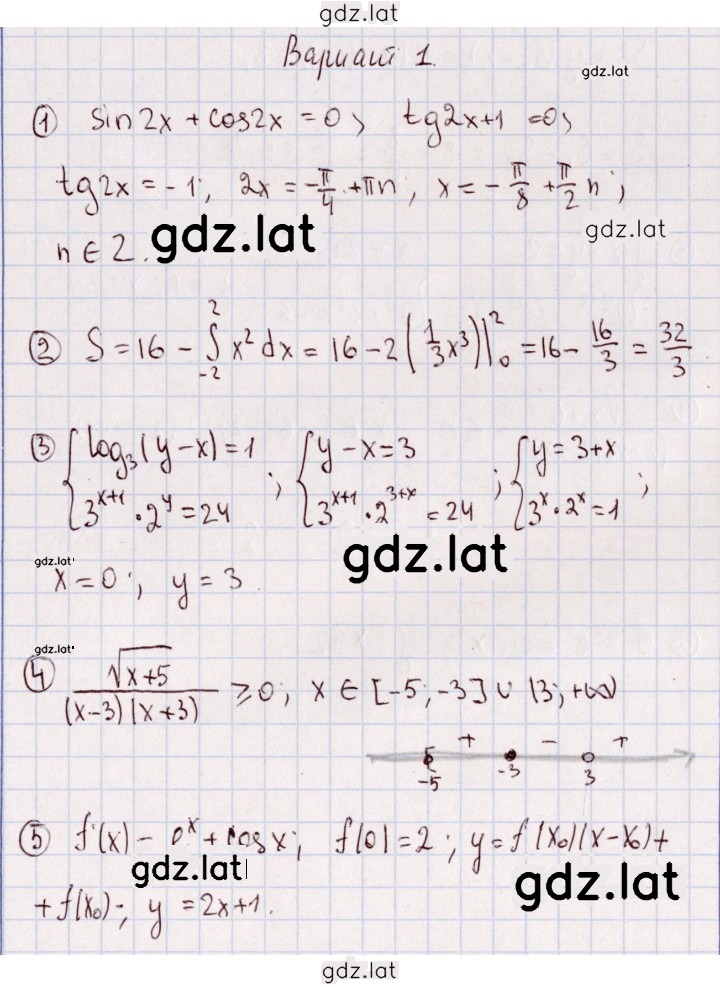 gdz.lat
Вариант 1.
gdz.lat
① sin2x + cos2x = 0; tg2x+1 =0;
tg2x = -1; 2x = -π/4 +πn, x = -π/8 + π/2 n;
n ∈ Z.
gdz.lat
gdz.lat
② S = 16 - ∫₋₂² x² dx = 16 - 2(1/3 x³)|₀² = 16 - 16/3 = 32/3
③ {log₃(y-x) = 1; 3ˣ⁺¹ · 2ʸ = 24 ; {y - x = 3; 3ˣ⁺¹ · 2³⁺ˣ = 24 ; {y = 3+x; 3ˣ · 2ˣ = 1 ;
gdz.lat
gdz.lat
x = 0; y = 3.
gdz.lat
④ √(x+5) / (x-3)(x+3) ≥ 0; x ∈ [-5; -3] ∪ (3; +∞)
+ - +
-5 -3 3
⑤ f'(x) - eˣ + cosx; f(0) = 2; y = f'(x₀)(x-x₀) +
gdz.lat
gdz.lat
+ f(x₀); y = 2x+1.
gdz.lat